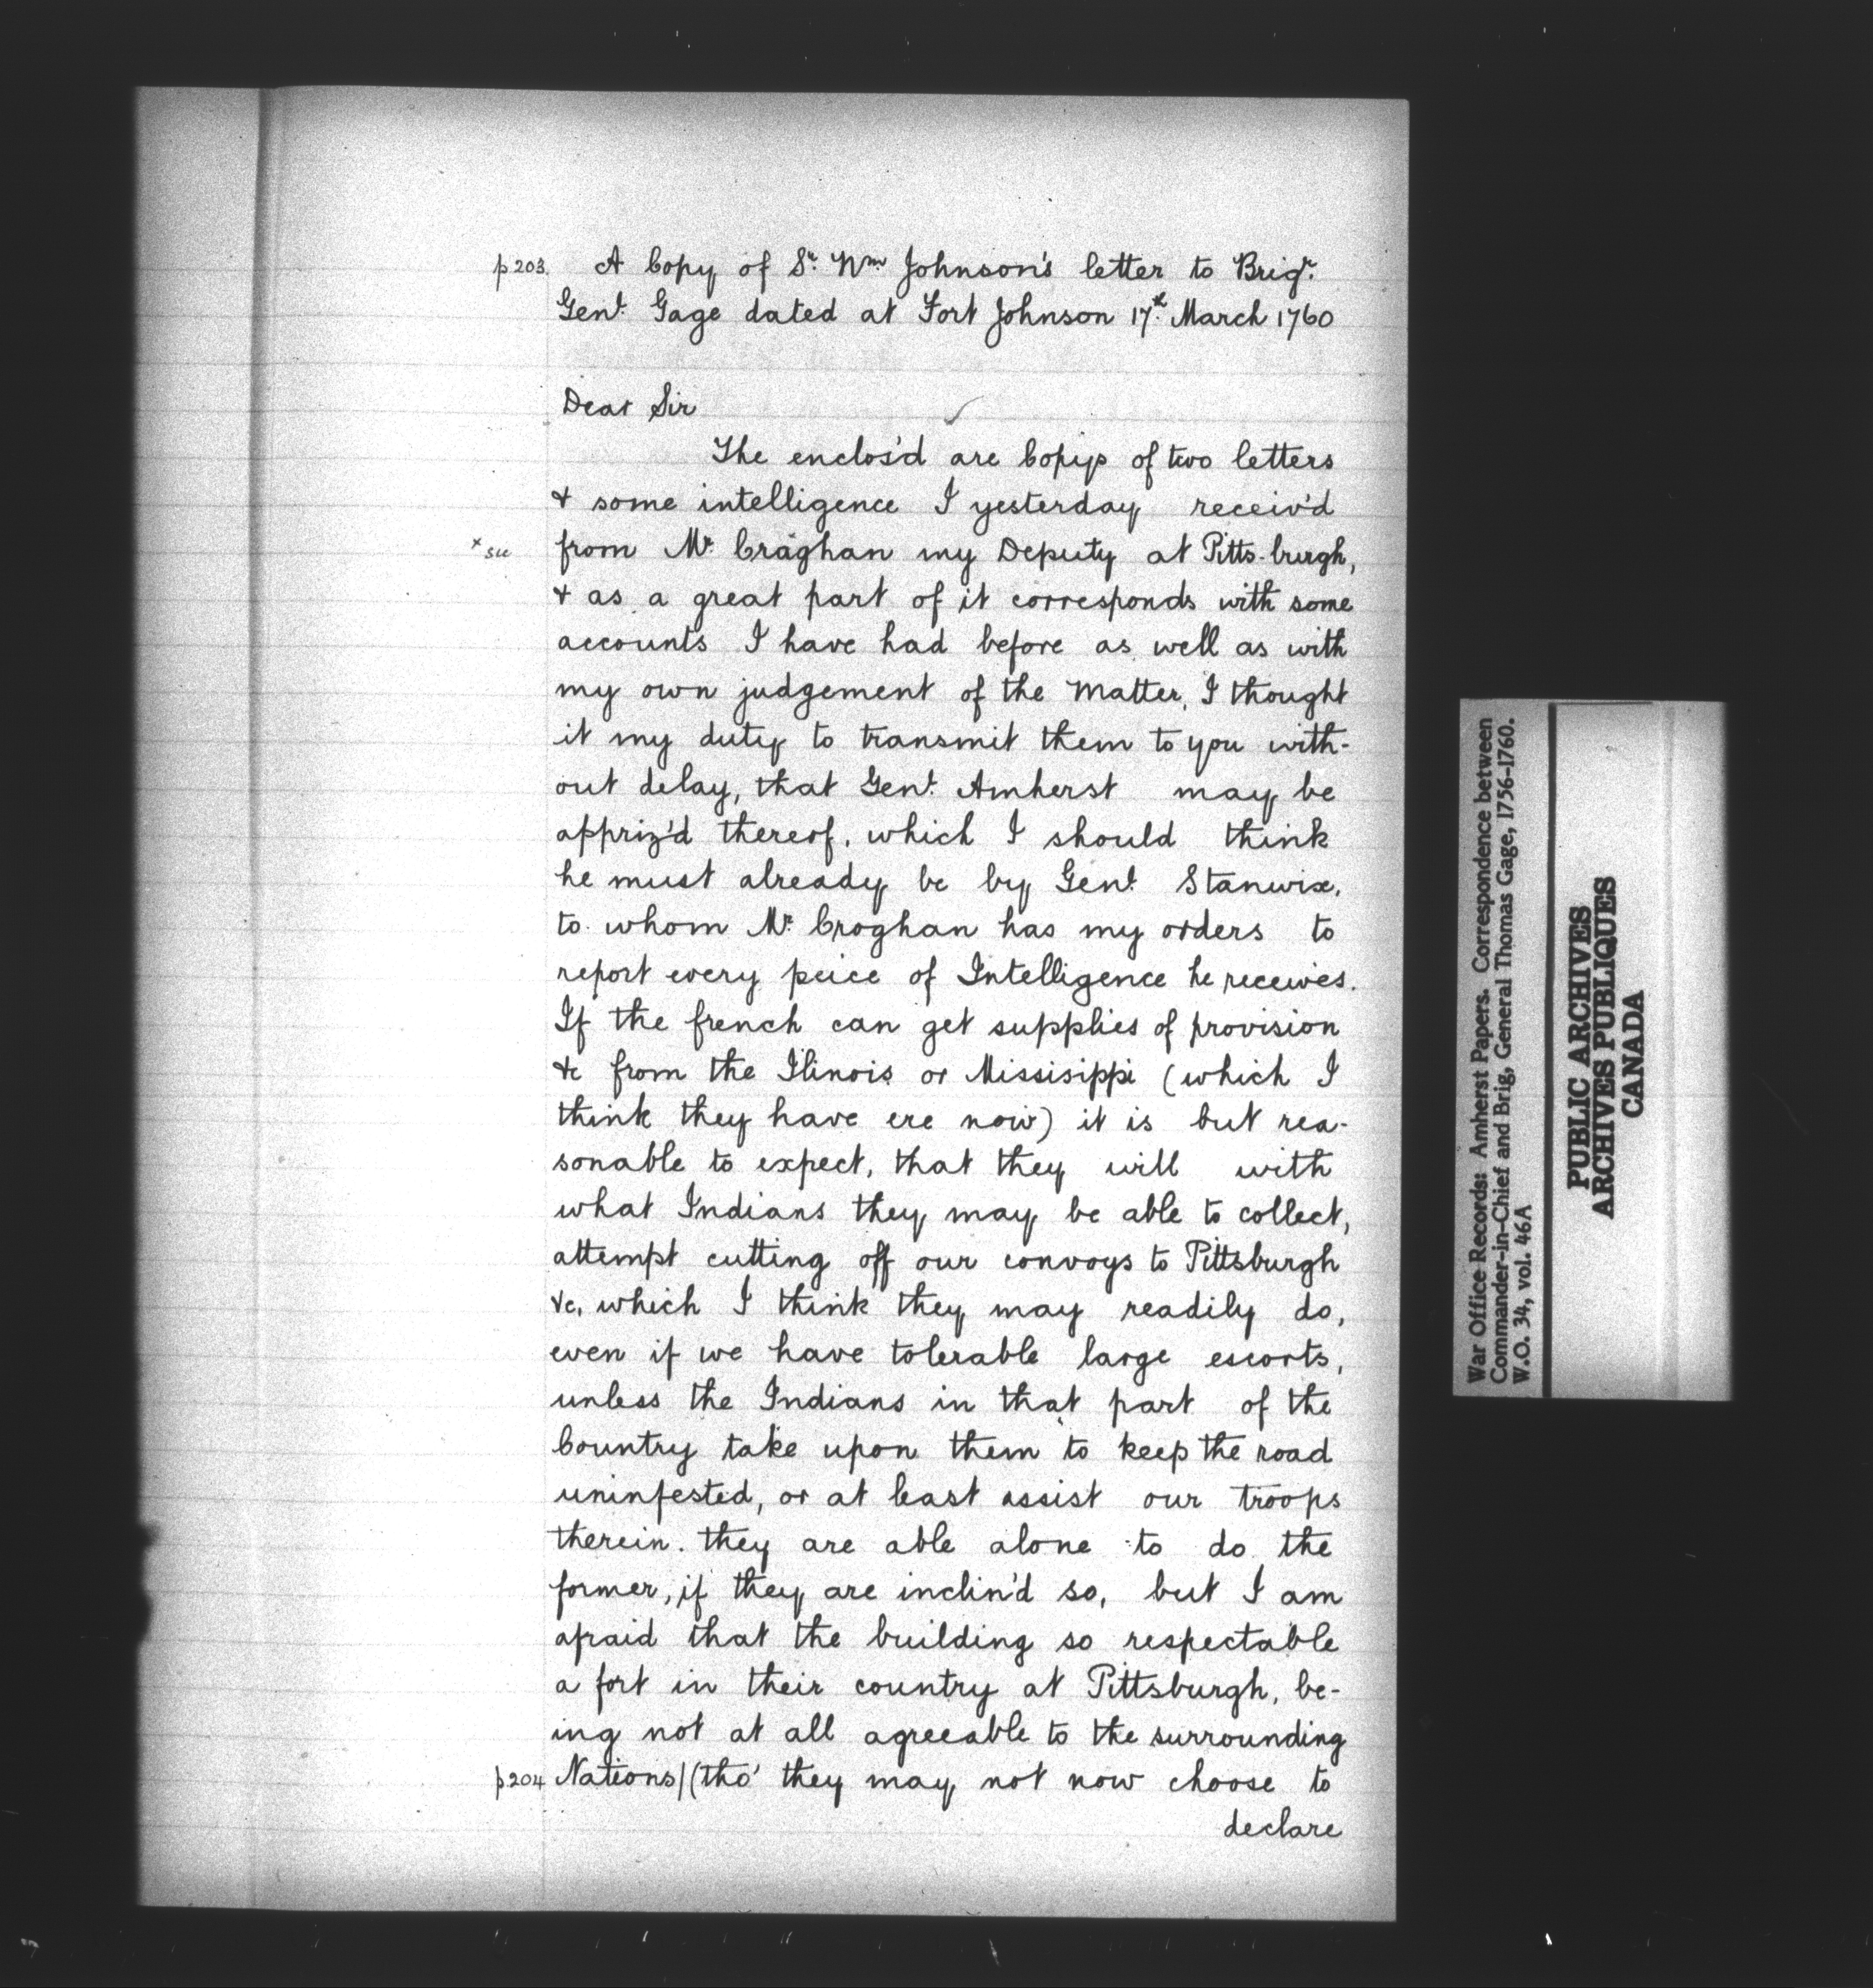 p.203. A Copy of Sr. Wm. Johnson's letter to Brigr.
Genl. Gage dated at Fort Johnson 17th. March 1760
Dear Sir
The enclos'd are Copys of two letters
& some intelligence I yesterday receiv'd
x sic from Mr. Craghan my Deputy at Pitts-burgh,
& as a great part of it corresponds with some
accounts I have had before as well as with
my own judgement of the Matter, I thought
it my duty to transmit them to you with-
out delay, that Genl. Amherst may be
appriz'd thereof, which I should think
he must already be by Genl. Stanwix,
to whom Mr. Croghan has my orders to
report every peice of Intelligence he receives.
If the french can get supplies of provision
&c from the Ilinois or Missisippi (which I
think they have ere now) it is but rea-
sonable to expect, that they will with
what Indians they may be able to collect,
attempt cutting off our convoys to Pittsburgh
&c, which I think they may readily do,
even if we have tolerable large escorts,
unless the Indians in that part of the
Country take upon them to keep the road
uninfested, or at least assist our troops
therein. they are able alone to do the
former, if they are inclin'd so, but I am
afraid that the building so respectable
a fort in their country at Pittsburgh, be-
ing not at all agreeable to the surrounding
p.204 Nations|(tho' they may not now choose to
declare
War Office Records: Amherst Papers. Correspondence between
Commander-in-Chief and Brig, General Thomas Gage, 1756-1760.
W.O. 34, vol. 46A
PUBLIC ARCHIVES
ARCHIVES PUBLIQUES
CANADA